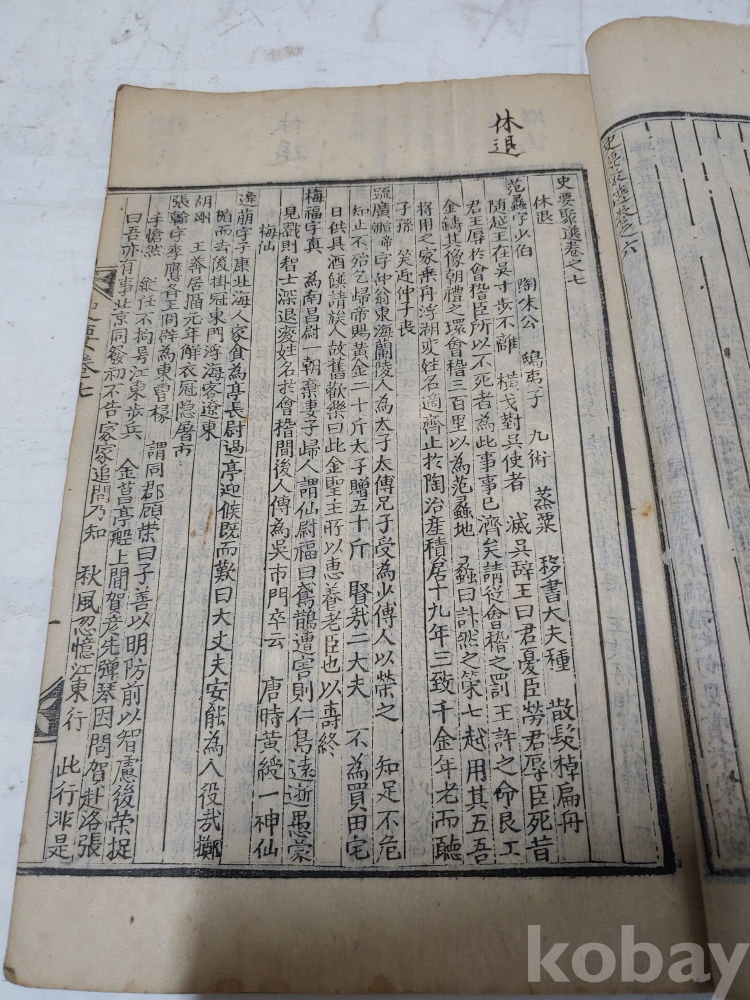 休退
史要聚選卷之六
史要聚選卷之七
休退
范蠡字少伯 陶朱公 鴟夷子 九術 蒸粟 移書大夫種 散髮棹扁舟
隨越王在吳寸步不離 橫戈對吳使者 滅吳辞王曰君憂臣勞君辱臣死昔
君王辱於會稽臣所以不死者為此事事已濟矣請從會稽之罰王許之命良工
金鑄其像朝禮之環會稽三百里以為范蠡地 蠡曰計然之策七越用其五吾
將用之家乘舟浮湖変姓名適齊止於陶治產積居十九年三致千金年老而聽
子孫 笑近仲子丧
疏廣 字仲翁東海蘭陵人為太子太傅兄子受為少傅人以榮之 知足不危
知止不殆乞歸帝賜黃金二十斤太子贈五十斤 賢哉二大夫 不為買田宅
日供具酒饌請族人故舊歡樂曰此金聖主所以惠養老臣也以壽終
梅福字真 為南昌尉一朝棄妻子歸人謂仙尉福曰鳶鵲遭害則仁鳥遠逝愚蒙
見戮則智士深退変姓名於會稽間後人傳為吳市門卒云 唐時黃綬一神仙
梅仙
逄萌字子康北海人家貧為亭長尉過亭迎候既而歎曰大丈夫安能為人役哉擲
楯而去後掛冠東門浮海客遼東
胡剛 王莽居攝元年解衣冠隱屠市
張翰字季鷹各王冏辟為東曹掾 謂同郡顧榮曰子善以明防前以智慮後荣捉
手愴然 縱任不拘号江東步兵 金菖亭船上聞賀彦先彈琴因問賀赴洛張
曰吾亦有事北京同發初不告家家追問乃知 秋風忽憶江東行 此行非是
史要卷七
kobay